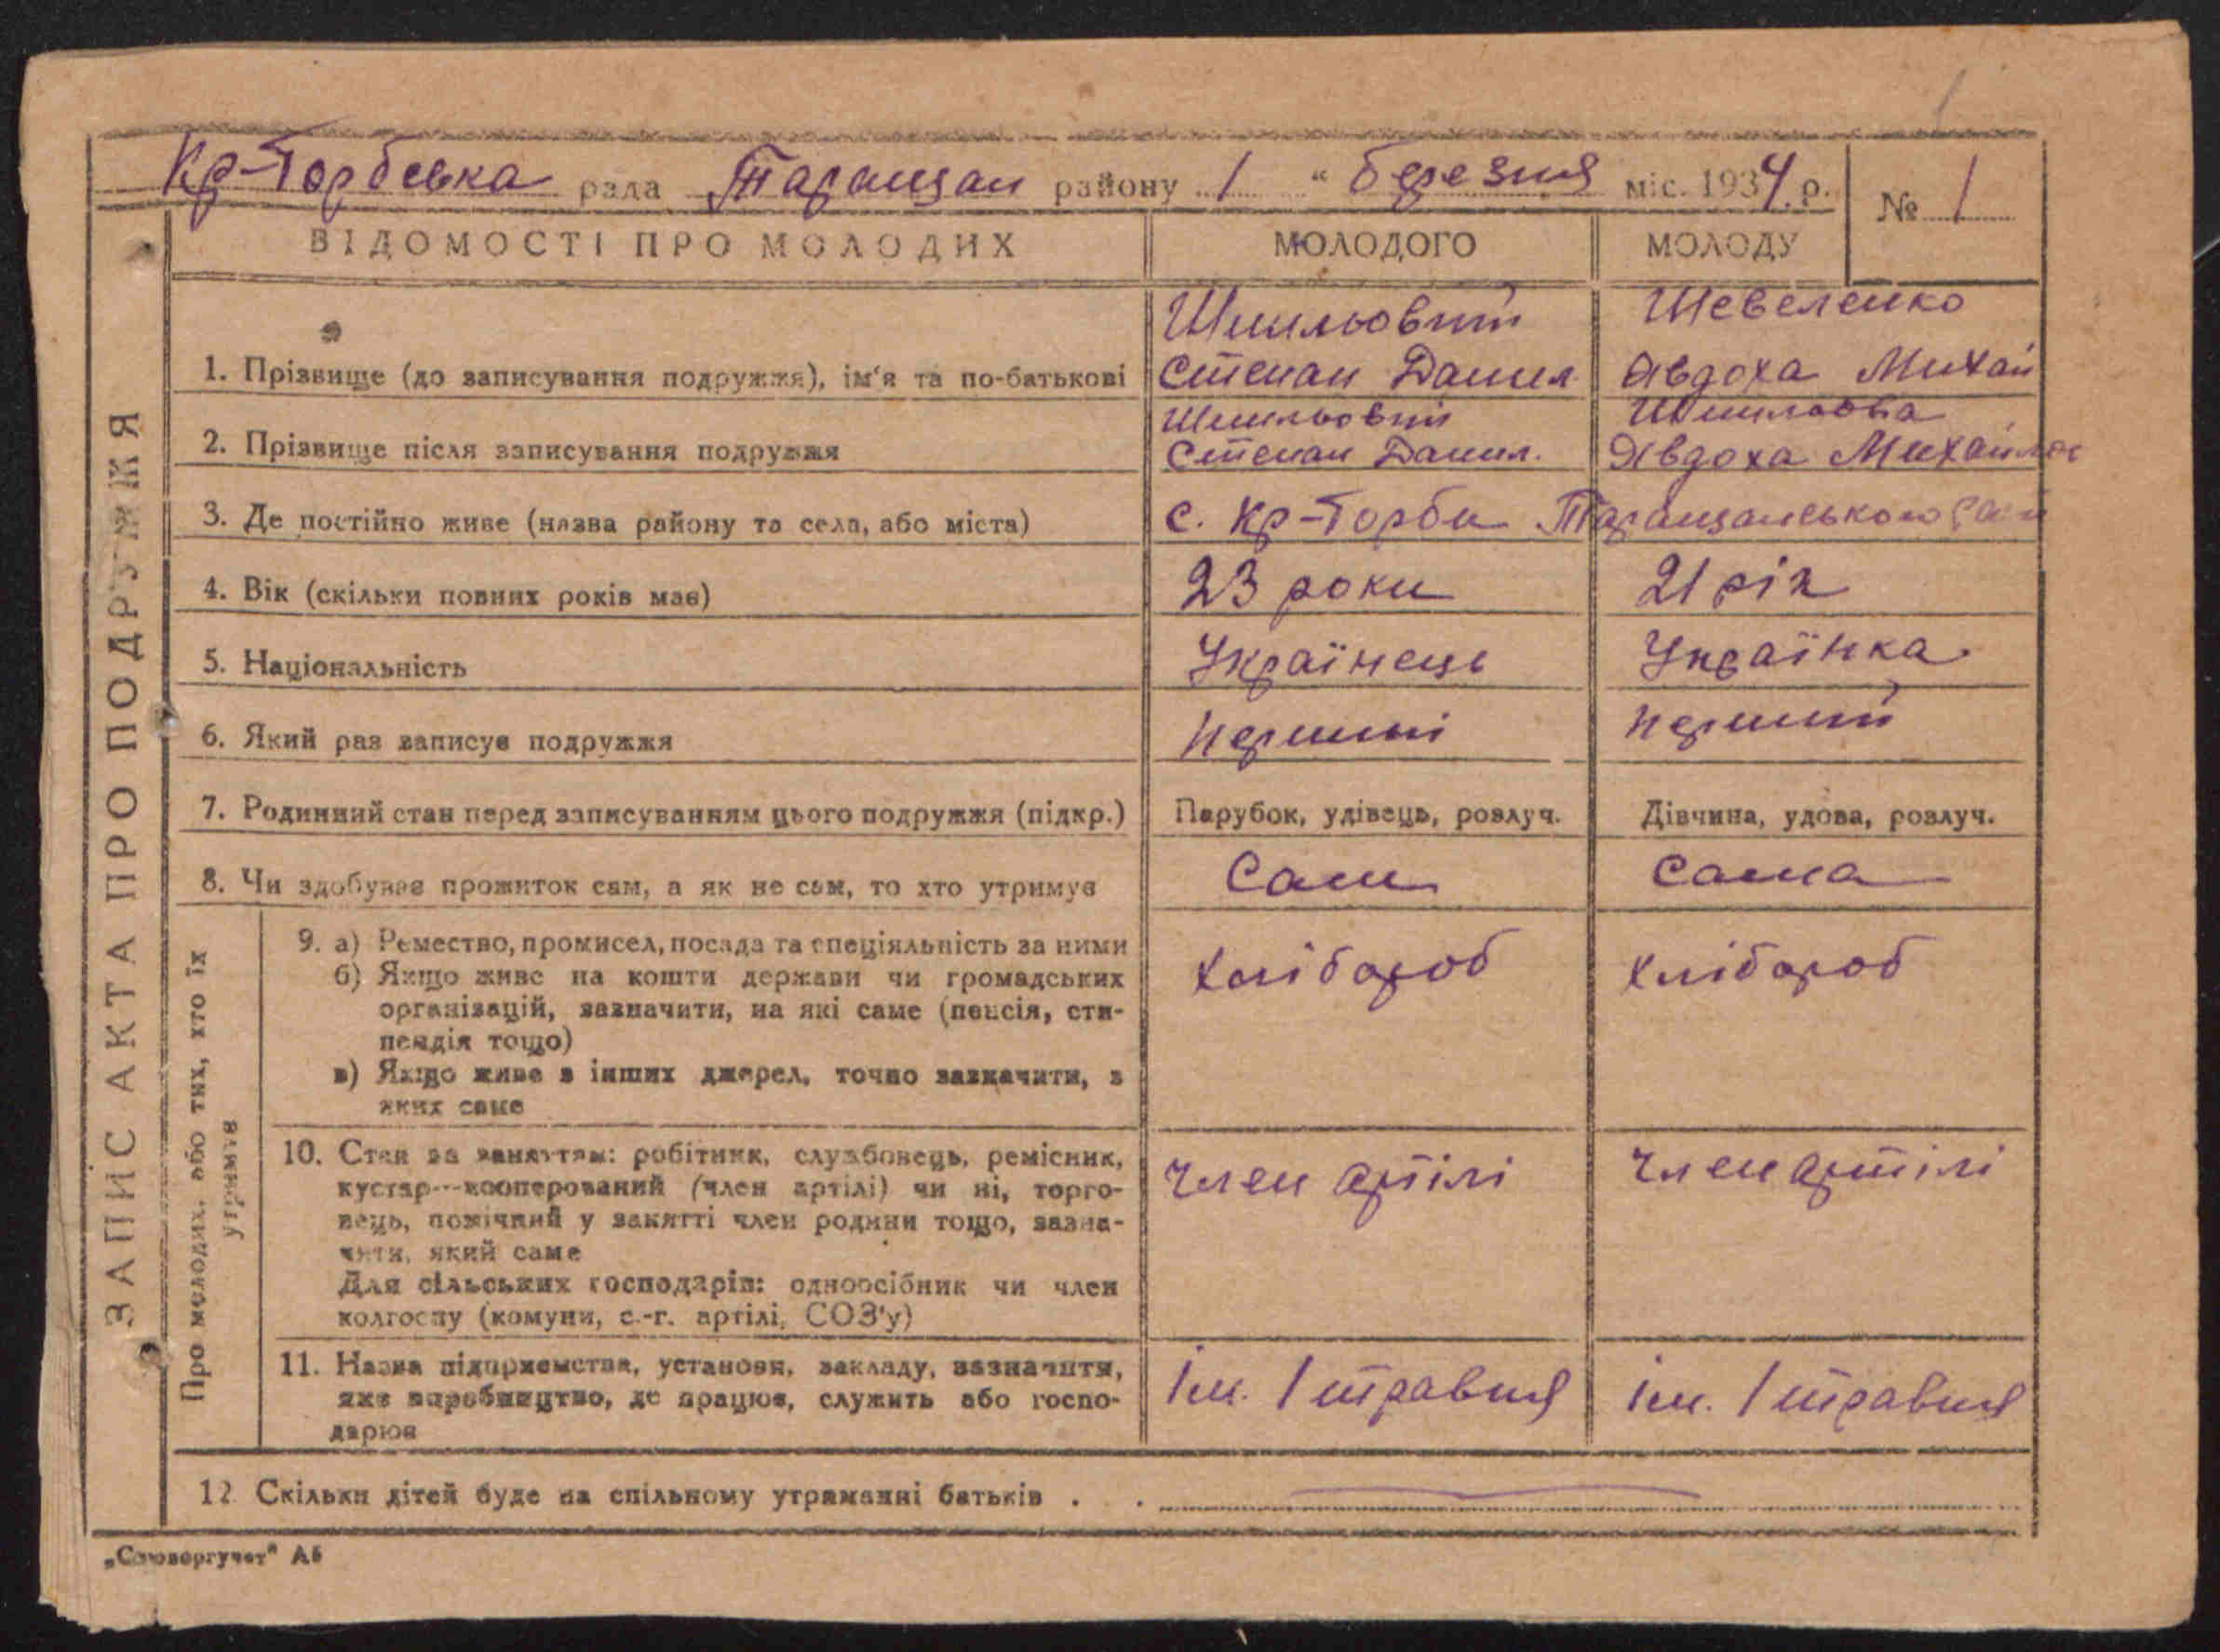 Кр-Горбевка рада Таращан району 1 " березня міс. 1934 р. № 1
ВІДОМОСТІ ПРО МОЛОДИХ МОЛОДОГО МОЛОДУ
Шевеленко
1. Прізвище (до записування подружжя), ім'я та по-батькові Степан Данил Явдоха Михай
2. Прізвище після записування подружжя Степан Данил. Явдоха Михайлов
3. Де постійно живе (назва району та села, або міста) с. Кр-Горби Таращанського рай
4. Вік (скільки повних років має) 23 роки 21 рік
5. Національність Українець Українка
6. Який раз записує подружжя перший перший
7. Родинний стан перед записуванням цього подружжя (підкр.) Парубок, удівець, розлуч. Дівчина, удова, розлуч.
8. Чи здобуває прожиток сам, а як не сам, то хто утримує Сам Сама
ЗАПИС АКТА ПРО ПОДРУЖЖЯ
Про молодих, або тих, хто їх
утримує
9. а) Ремество, промисел, посада та спеціяльність за ними Хлібороб Хлібороб
б) Якщо живе на кошти держави чи громадських
організацій, зазначити, на які саме (пенсія, сти-
пендія тощо)
в) Якщо живе з інших джерел, точно зазначити, з
яких саме
10. Стан за заняттям: робітник, службовець, ремісник, член артілі член артілі
кустар—кооперований (член артілі) чи ні, торго-
вець, помічний у занятті член родини тощо, зазна-
чити, який саме
Для сільських господарів: одноосібник чи член
колгоспу (комуни, с.-г. артілі, СОЗ'у)
11. Назва підприємства, установи, закладу, зазначити, ім. 1 травня ім. 1 травня
яке виробництво, де працює, служить або госпо-
дарює
12 Скільки дітей буде на спільному утриманні батьків . .
„Союзоргучет" А5